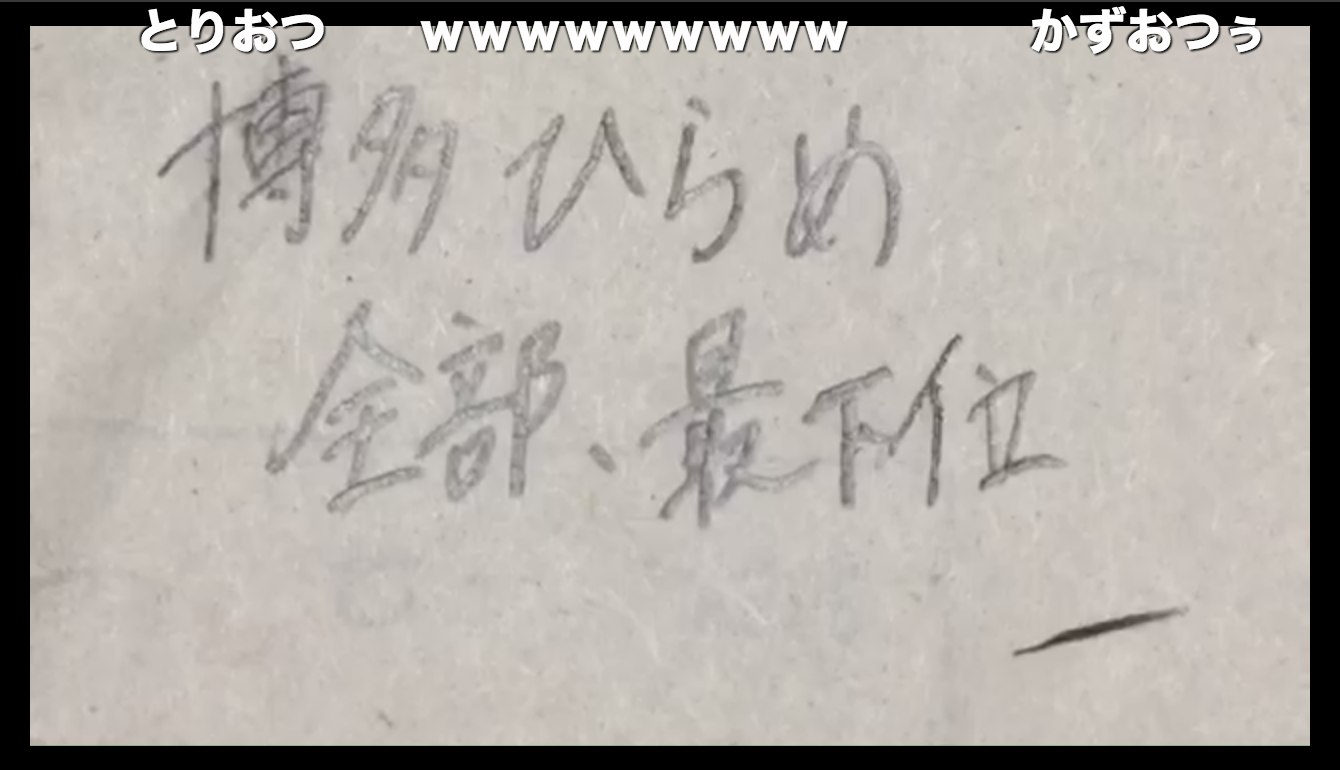 とりおつ wwwwwwwwww かずおつぅ
博多ひらめ
全部、最下位